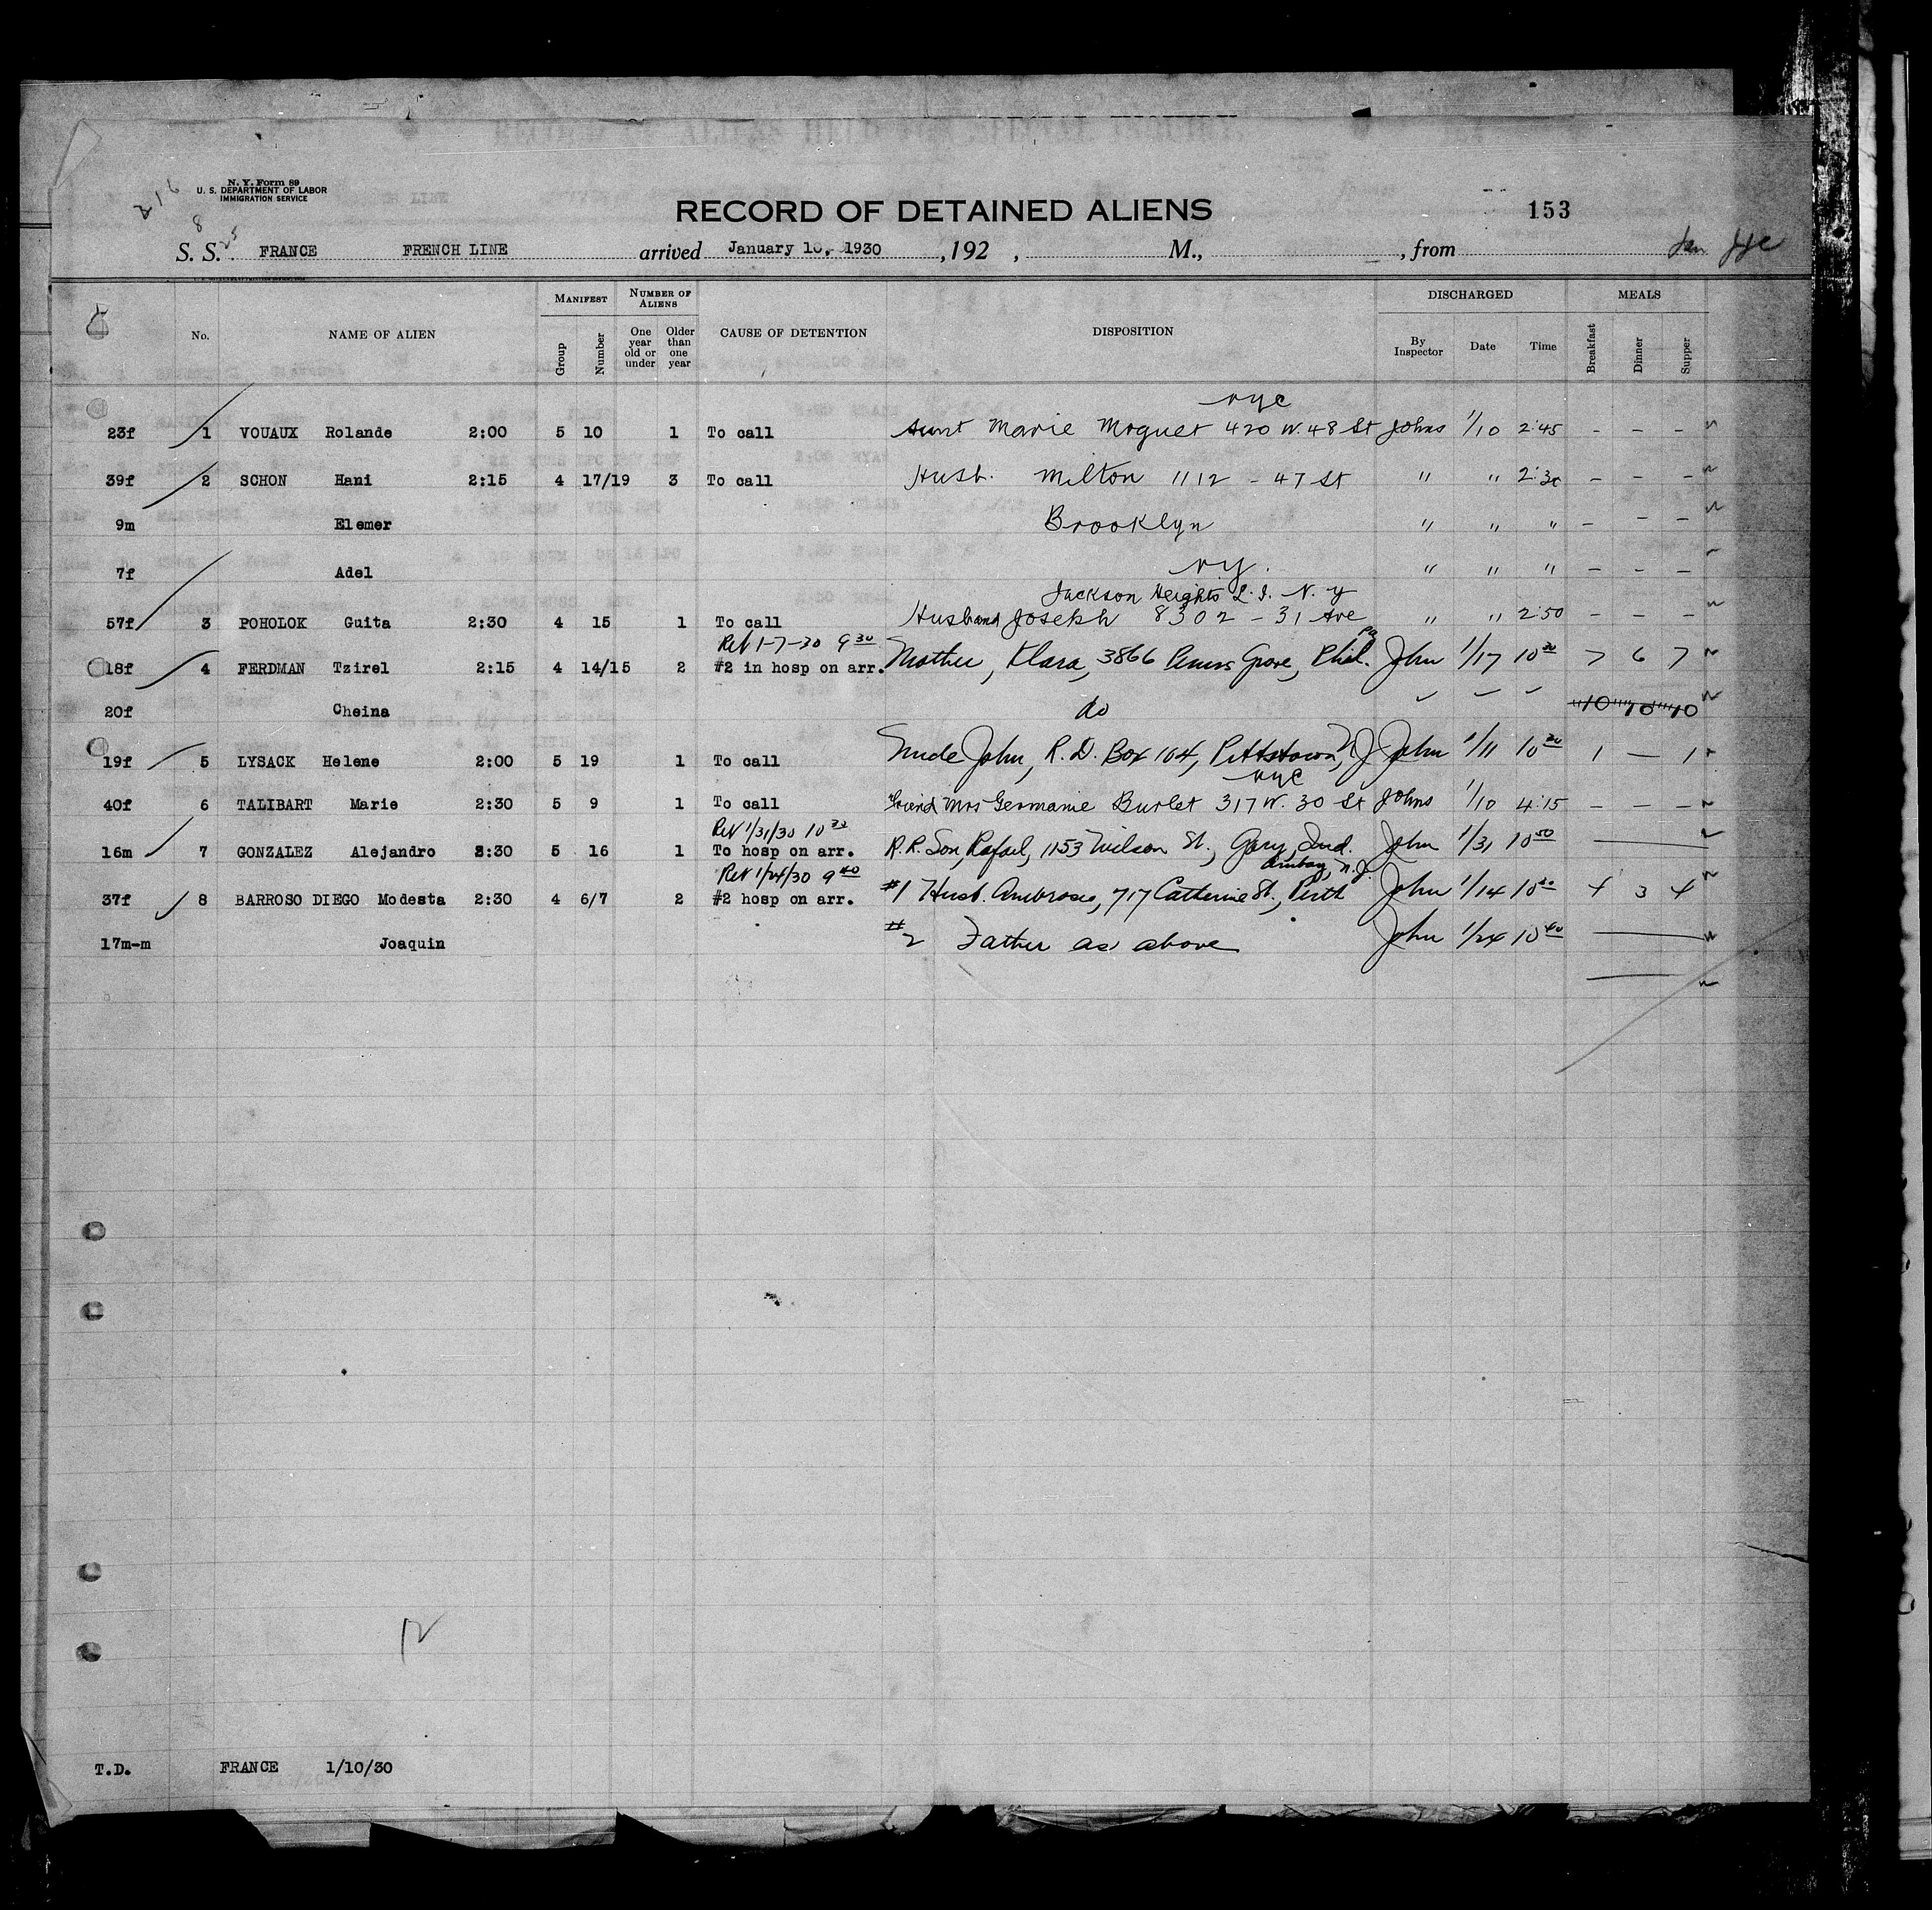 N. Y. Form 89
U. S. DEPARTMENT OF LABOR
IMMIGRATION SERVICE
216
8
25
RECORD OF DETAINED ALIENS
153
S. S. FRANCE FRENCH LINE arrived January 10, 1930 , 192 , M., , from
No. NAME OF ALIEN MANIFEST Group Number NUMBER OF ALIENS One year old or under Older than one year CAUSE OF DETENTION DISPOSITION DISCHARGED By Inspector Date Time MEALS Breakfast Dinner Supper
nyc
23f 1 VOUAUX Rolande 2:00 5 10 1 To call Aunt Marie Moguet 420 W. 48 St Johns 1/10 2:45 - - -
39f 2 SCHON Hani 2:15 4 17/19 3 To call Husb. Milton 1112 - 47 St " " 2:30 - - -
9m Elemer Brooklyn " " " - - -
7f Adel ny. " " " - - -
Jackson Heights L. I. N. Y
57f 3 POHOLOK Guita 2:30 4 15 1 To call Husband Joseph 8302 - 31 Ave " " 2:50 - - -
Rel 1-7-30 9 30
18f 4 FERDMAN Tzirel 2:15 4 14/15 2 #2 in hosp on arr. Mother, Klara, 3866 Grove, Phil. Pa John 1/17 10 30 7 6 7
20f Cheina do 10 10 10
19f 5 LYSACK Helene 2:00 5 19 1 To call Uncle John, R. D. Box 104, Pittstown, N J John 1/11 10 30 1 — 1
nyc
40f 6 TALIBART Marie 2:30 5 9 1 To call friend Mrs Germanie Burlet 317 W. 30 St Johns 1/10 4:15 - - -
Rel 1/31/30 10 30
16m 7 GONZALEZ Alejandro 3:30 5 16 1 To hosp on arr. R. R. Son, Rafael, 1153 Wilson St., Gary, Ind. John 1/31 10 50
Rel 1/24/30 9 40 Amboy, N. J.
37f 8 BARROSO DIEGO Modesta 2:30 4 6/7 2 #2 hosp on arr. #1 Husb. Ambrosio, 717 Catherine St., Perth John 1/14 10 40 4 3 4
17m-m Joaquin #2 Father as above John 1/24 10 40
12
T.D. FRANCE 1/10/30